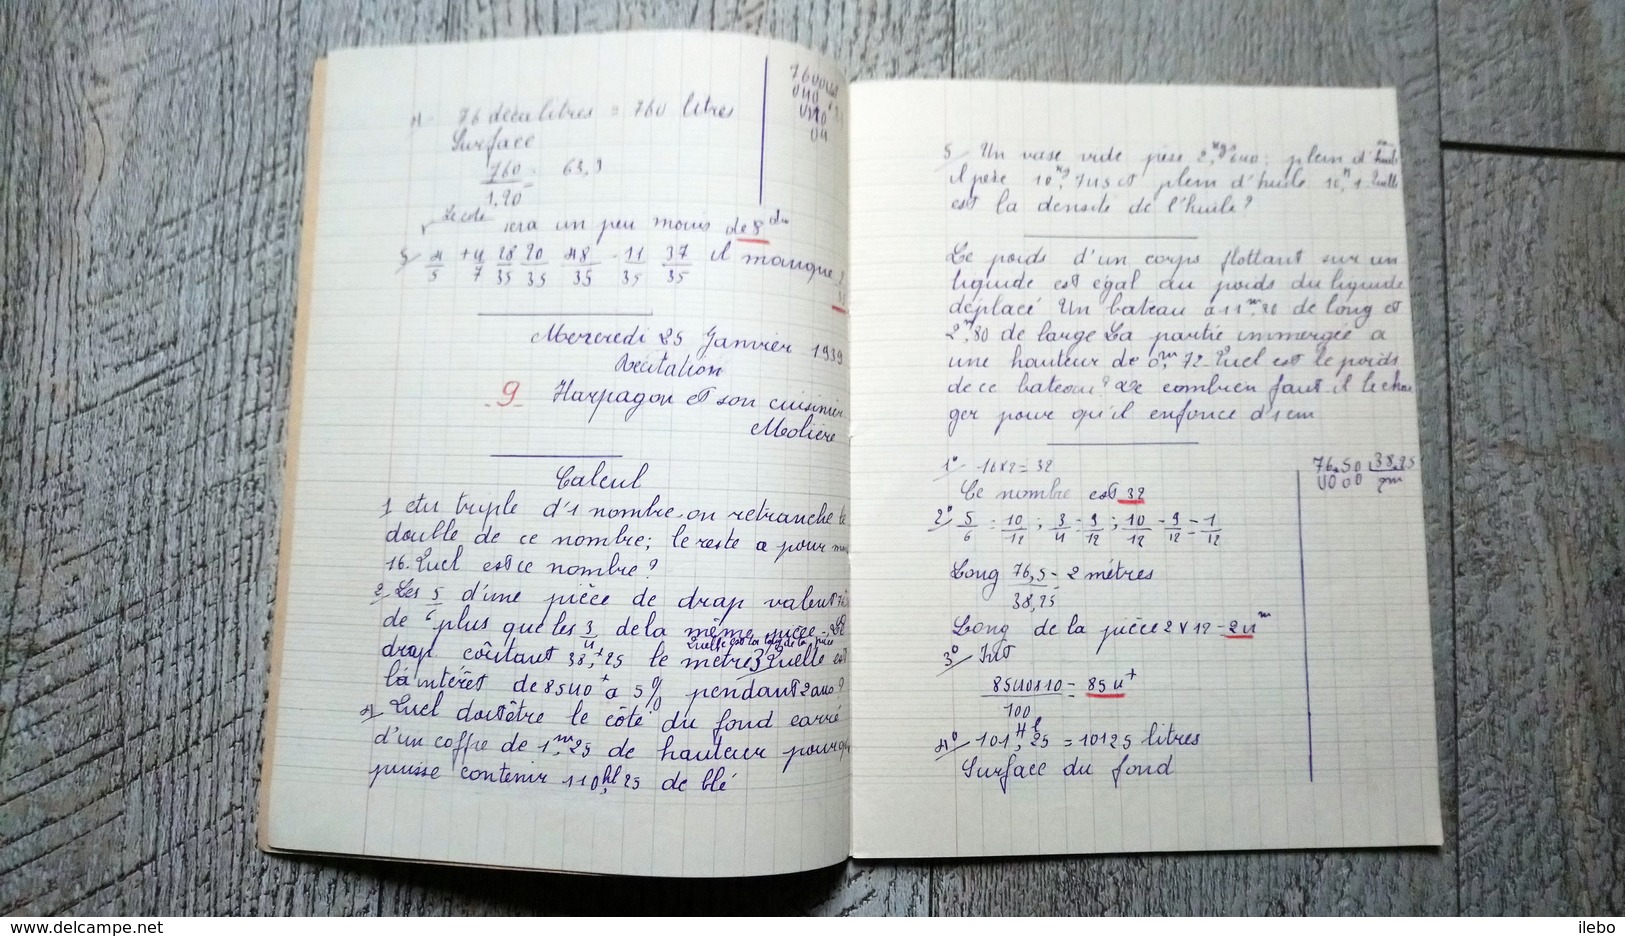 4- 76 decalitres = 760 litres
Surface
760 = 63,3
1,20
Le coté sera un peu moins de 8 dm
5 4 + 4 28 20 48 - 11 37 il manque
5 7 35 35 35 35 35
Mercredi 25 Janvier 1939
Récitation
9 Harpagon et son cuisinier
Molière
Calcul
1 du triple d'1 nombre on retranche le
double de ce nombre; le reste a pour
16. Quel est ce nombre?
2 Les 5/6 d'une pièce de drap valent
de plus que les 3/4 de la même pièce.
Quelle est la long de la pièce
drap coûtant 38,f25 le mètre 3 Quelle est
l'intérêt de 8540f à 5% pendant 2 ans?
4 Quel doit être le côté du fond carré
d'un coffre de 1,m25 de hauteur pour qu
puisse contenir 110,hl25 de blé
5 Un vase vide pèse 2,kg640; plein d'
il pèse 10 kg,745 et plein d'huile
est la densité de l'huile?
Le poids d'un corps flottant sur un
liquide est égal au poids du liquide
déplacé Un bateau a 11m,20 de long et
2m,80 de large La partie immergée a
une hauteur de 0m,72 Quel est le poids
de ce bateau? De combien faut il le char
ger pour qu'il enfonce d'1cm
1° - 16x2 = 32
Ce nombre est 32
76.50 38.25
0000 2m
2° 5/6 = 10/12 ; 3/4 = 9/12 ; 10/12 - 9/12 = 1/12
Long 76,5 = 2 mètres
38,25
Long de la pièce 2 x 12 = 24m
3° Int
8540x10 = 854f
100
4° 101Hl,25 = 10125 litres
Surface du fond
ilebo